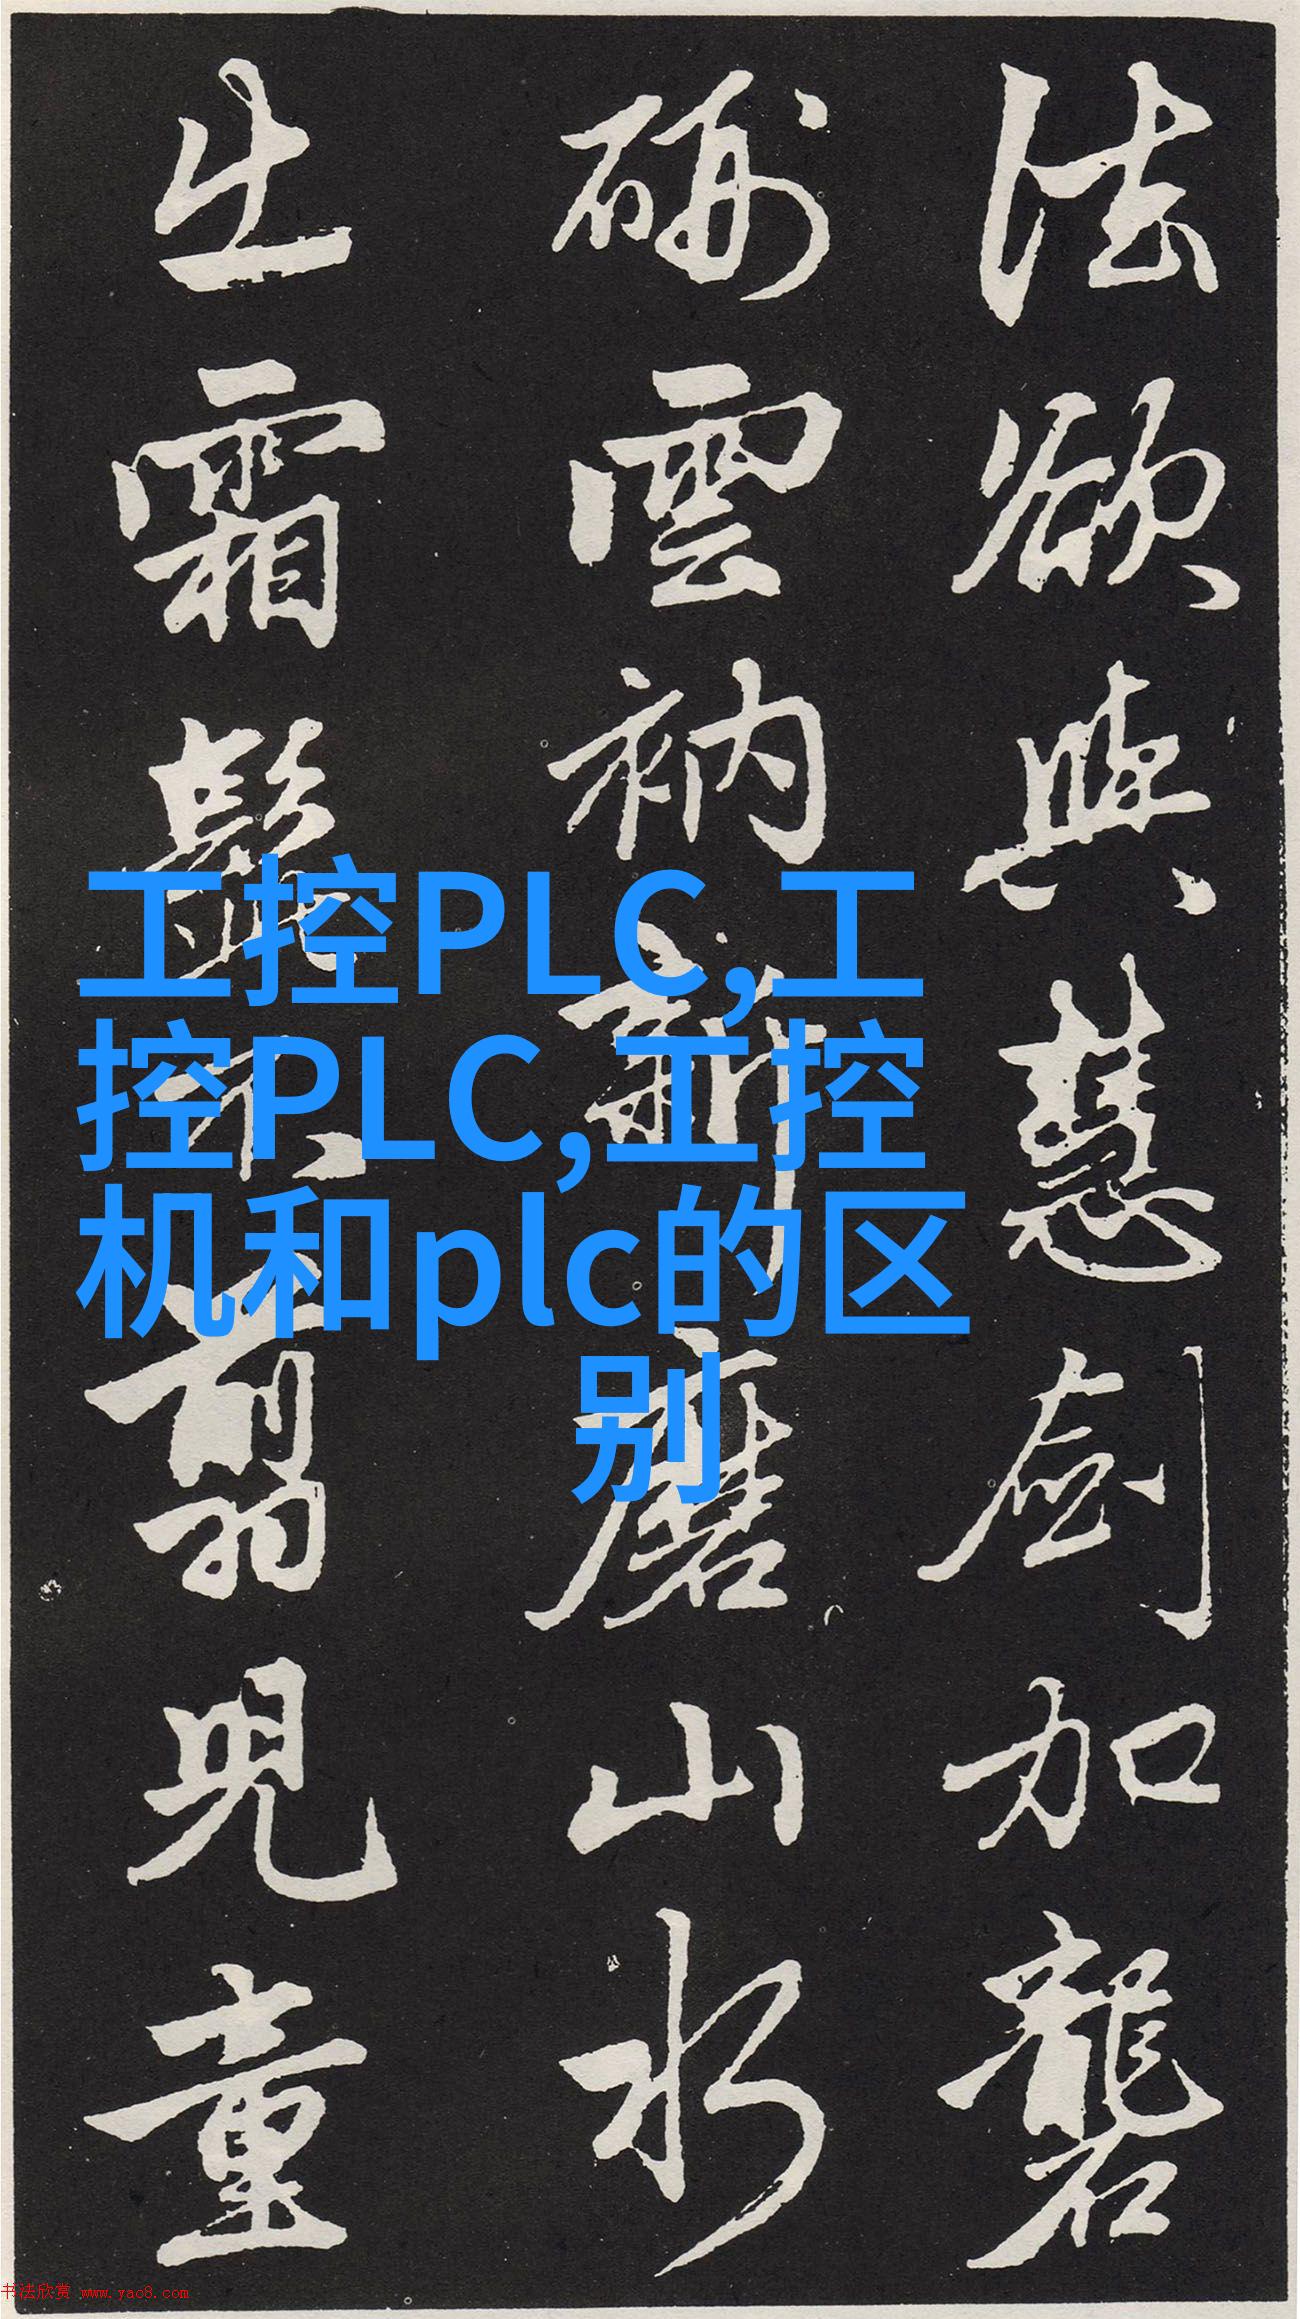 法欲與慧劍加礱
硎雲衲新磨山水
出霜髭不翦兒童
工控PLC,工
控PLC,工控
机和plc的区
别
书法欣赏 www.yac8.com